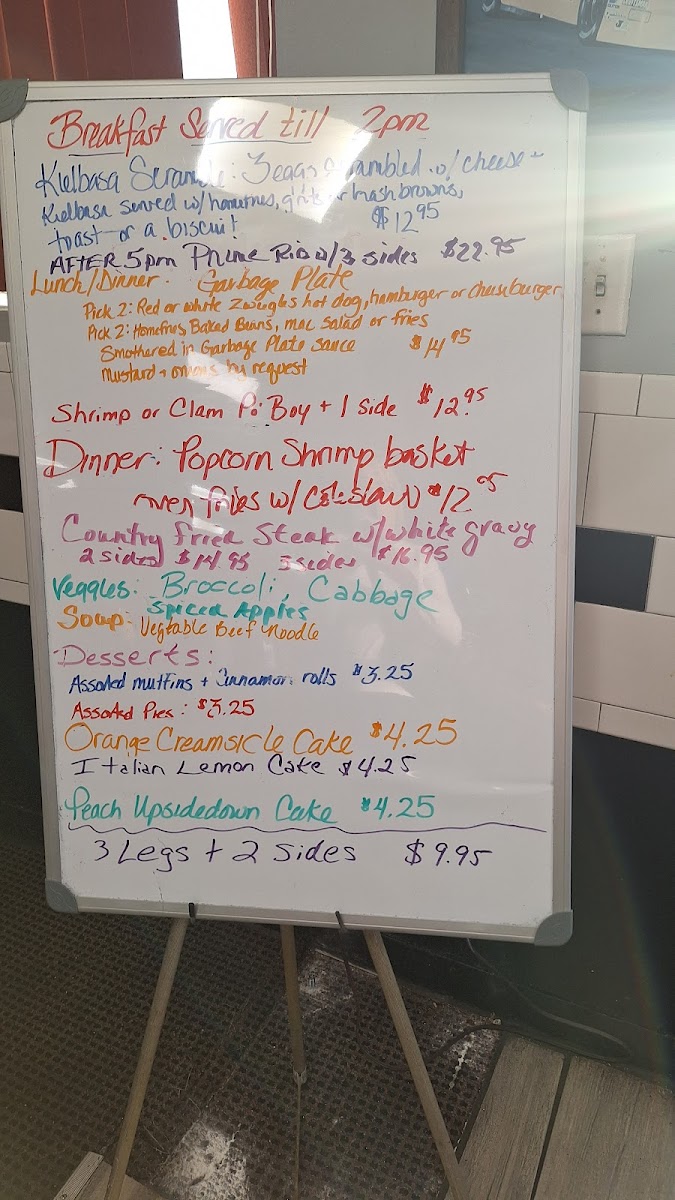 Breakfast Served till 2pm
Kielbasa Scramble: 3 eggs scrambled w/ cheese +
Kielbasa served w/ homefries, grits or hashbrowns,
toast or a biscuit $12.95
AFTER 5pm Prime Rib w/3 sides $22.95
Lunch/Dinner: Garbage Plate
Pick 2: Red or white Zweigles hot dog, hamburger or cheeseburger
Pick 2: Homefries, Baked Beans, mac Salad or fries
Smothered in Garbage Plate Sauce $14.95
mustard + onions by request
Shrimp or Clam Po Boy + 1 side $12.95
Dinner: Popcorn Shrimp basket
over fries w/ Coleslaw $12.95
Country Fried Steak w/white gravy
2 sides $14.95 3 sides $16.95
Veggies: Broccoli, Cabbage
Spiced Apples
Soup: Vegtable Beef Noodle
Desserts:
Assorted muffins + Cinnamon rolls $3.25
Assorted Pies: $3.25
Orange Creamsicle Cake $4.25
Italian Lemon Cake $4.25
Peach Upsidedown Cake $4.25
3 Legs + 2 Sides $9.95